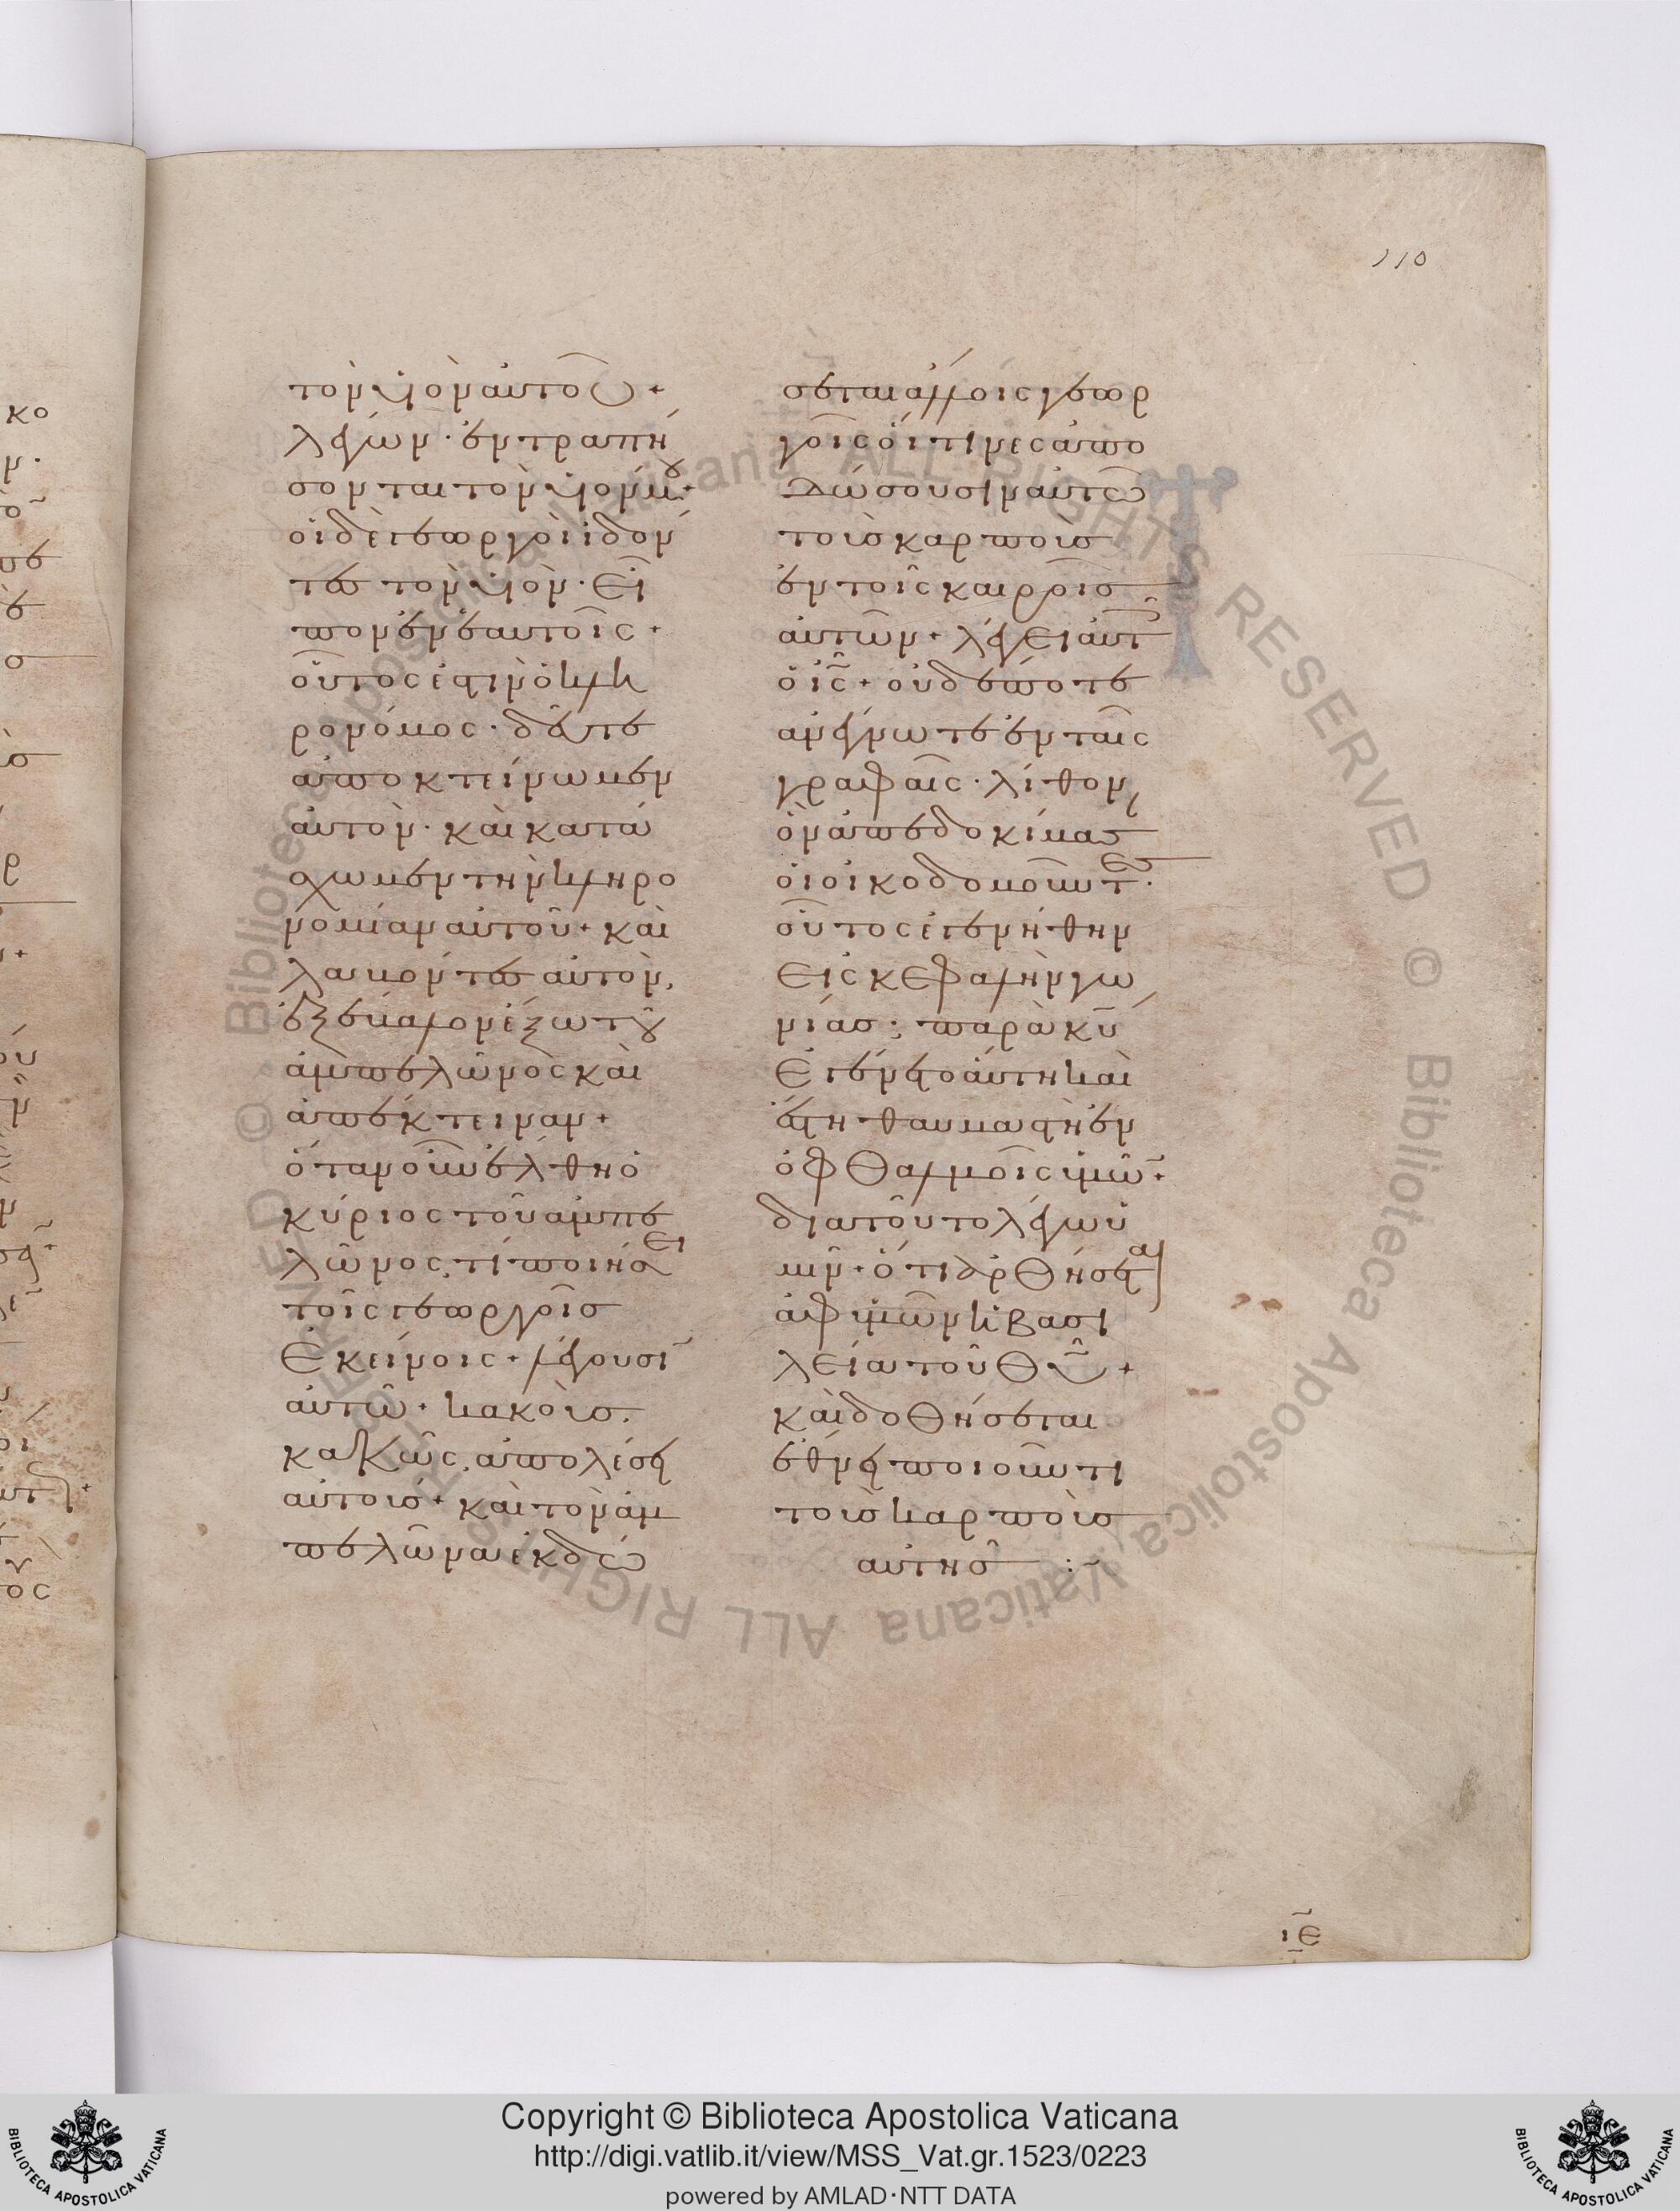 110
τὸν υἱὸν αὐτοῦ +
λέγων · ἐντραπή
σονται τὸν υἱόν μου +
οἱ δὲ γεωργοὶ ἰδόν
τες τὸν υἱὸν · εἶ
πον ἐν ἑαυτοῖς +
οὗτός ἐστιν ὁ κλη
ρονόμος · δεῦτε
ἀποκτείνωμεν
αὐτόν · καὶ κατά
σχωμεν τὴν κληρο
νομίαν αὐτοῦ + καὶ
λαβόντες αὐτὸν,
ἐξέβαλον ἔξω τοῦ
ἀμπελῶνος καὶ
ἀπέκτειναν +
ὅταν οὖν ἔλθη ὁ
κύριος τοῦ ἀμπε
λῶνος, τί ποιήσει
τοῖς γεωργοῖς
ἐκείνοις + λέγουσῖ
αὐτῶ + κακοὺς,
κακῶς ἀπολέσει
αὐτούς + καὶ τὸν ἀμ
πελῶνα ἐκδώ
σεται ἄλλοις γεωρ
γοῖς οἵτινες ἀπο
δώσουσιν αὐτῶ
τοὺς καρποὺς
ἐν τοῖς καιροῖς
αὐτῶν + λέγει αὐτ
οῖς ὁ ις + οὐδέποτε
ἀνέγνωτε ἐν ταῖς
γραφαῖς · λίθον
ὃν ἀπεδοκίμασ
οἱ οἰκοδομοῦντες ·
οὗτος ἐγενήθη
εἰς κεφαλὴν γω
νίας ; παρὰ κυ
ἐγένετο αὕτη καὶ
ἔστι θαυμαστὴ ἐν
ὀφθαλμοῖς ἡμῶ +
διὰ τοῦτο λέγω ὑ
μῖν + ὅτι ἀρθήσεται
ἀφ ὑμῶν ἡ βασι
λεία τοῦ θυ +
καὶ δοθήσεται
ἔθνει ποιοῦντι
τοὺς καρποὺς
αὐτῆς :~
ιε
Copyright © Biblioteca Apostolica Vaticana
http://digi.vatlib.it/view/MSS_Vat.gr.1523/0223
powered by AMLAD·NTT DATA